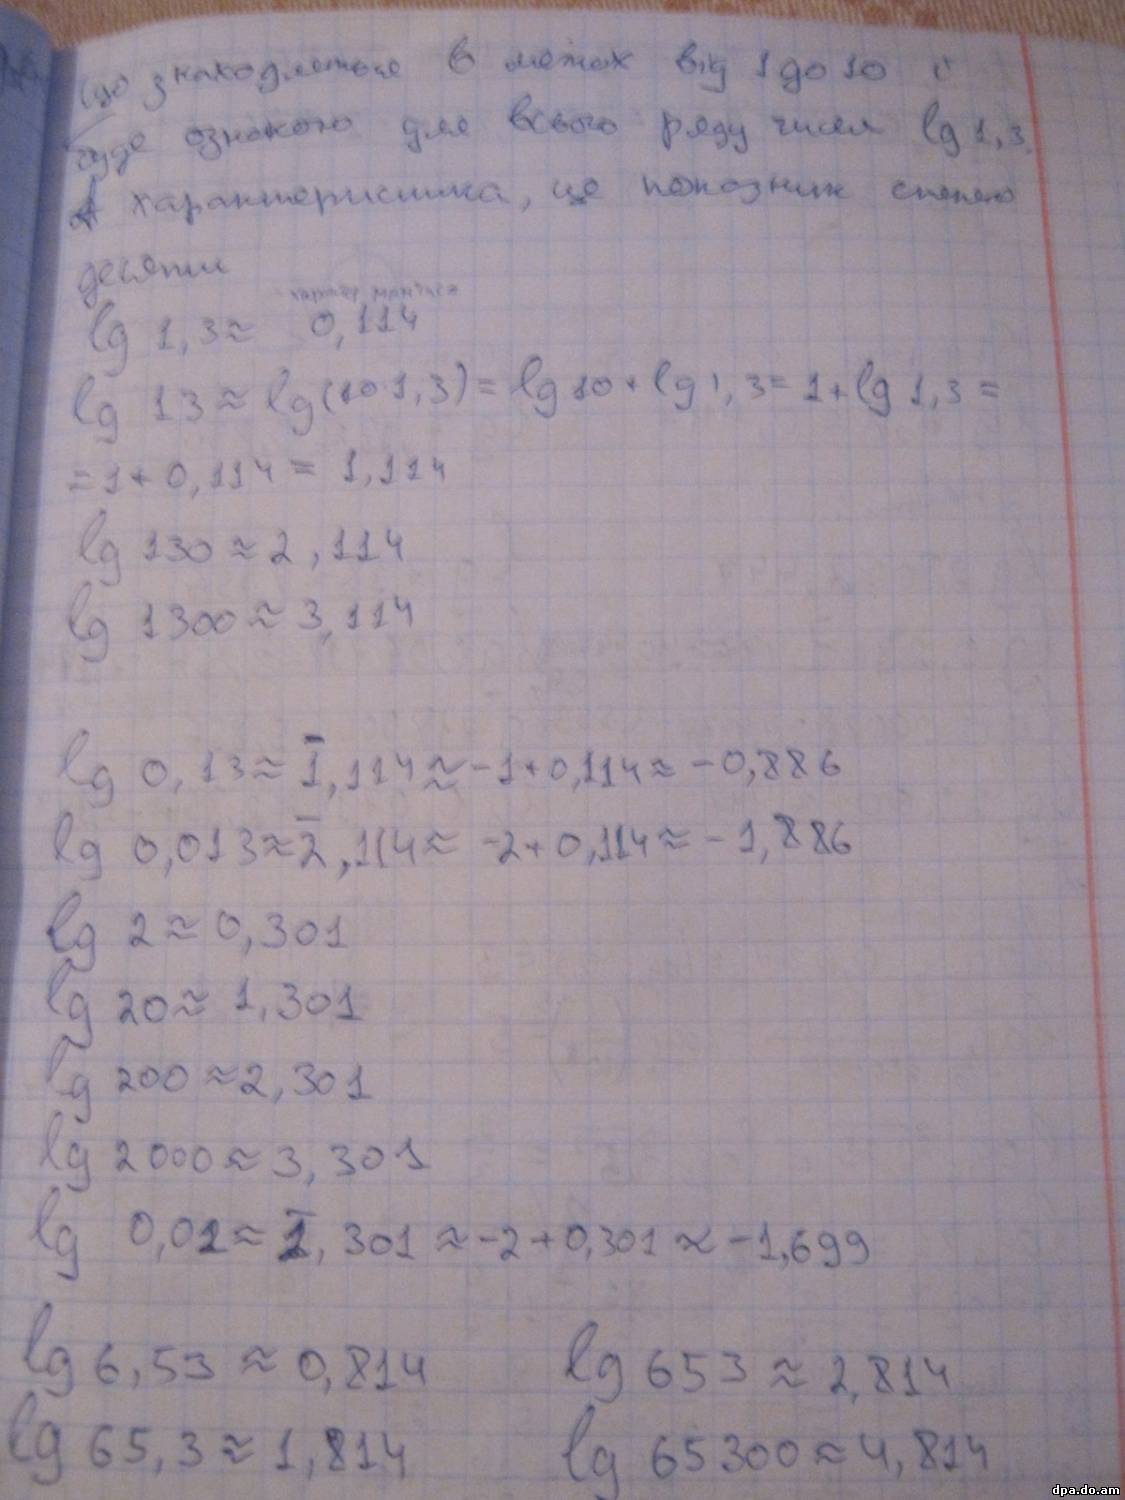 що знаходяться в межах від 1 до 10 і
буде ознакою для всього ряду чисел lg 1,3.
А характеристика, це показник степеню
десяти
мантиса
lg 1,3 ≈ 0,114
lg 13 ≈ lg(10·1,3) = lg 10 + lg 1,3 = 1 + lg 1,3 =
= 1 + 0,114 = 1,114
lg 130 ≈ 2,114
lg 1300 ≈ 3,114
lg 0,13 ≈ 1̄,114 ≈ -1+0,114 ≈ -0,886
lg 0,013 ≈ 2̄,114 ≈ -2+0,114 ≈ -1,886
lg 2 ≈ 0,301
lg 20 ≈ 1,301
lg 200 ≈ 2,301
lg 2000 ≈ 3,301
lg 0,02 ≈ 2̄,301 ≈ -2+0,301 ≈ -1,699
lg 6,53 ≈ 0,814 lg 653 ≈ 2,814
lg 65,3 ≈ 1,814 lg 65300 ≈ 4,814
dpa.do.am